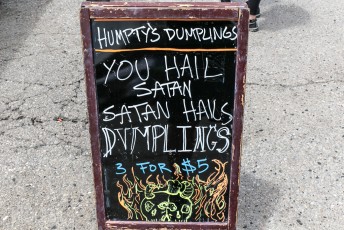 HUMPTY'S DUMPLINGS
YOU HAIL
SATAN
SATAN HAVS
DVMPLINGS
3 FOR $5